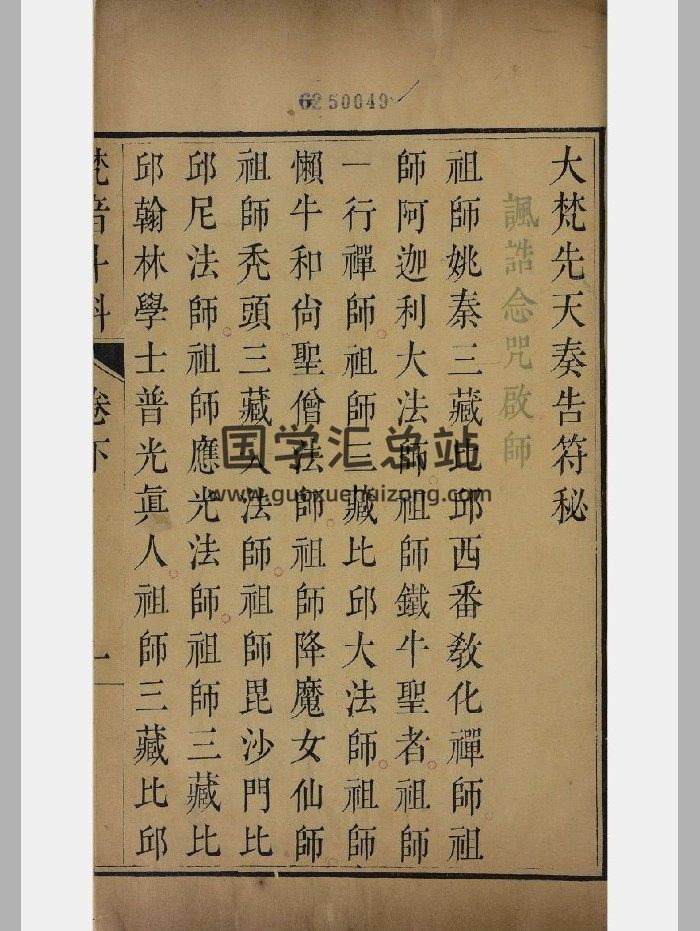 6250049
大梵先天奏告符秘
諷誥念咒啟師
祖師姚秦三藏比邱西番敎化禪師祖
師阿迦利大法師祖師鐵牛聖者祖師
一行禪師祖師三藏比邱大法師祖師
懶牛和尙聖僧法師祖師降魔女仙師
祖師秃頭三藏大法師祖師毘沙門比
邱尼法師祖師應光法師祖師三藏比
邱翰林學士普光眞人祖師三藏比邱
梵音斗科
卷下
一
国学汇总站
www.guoxuehuizong.com